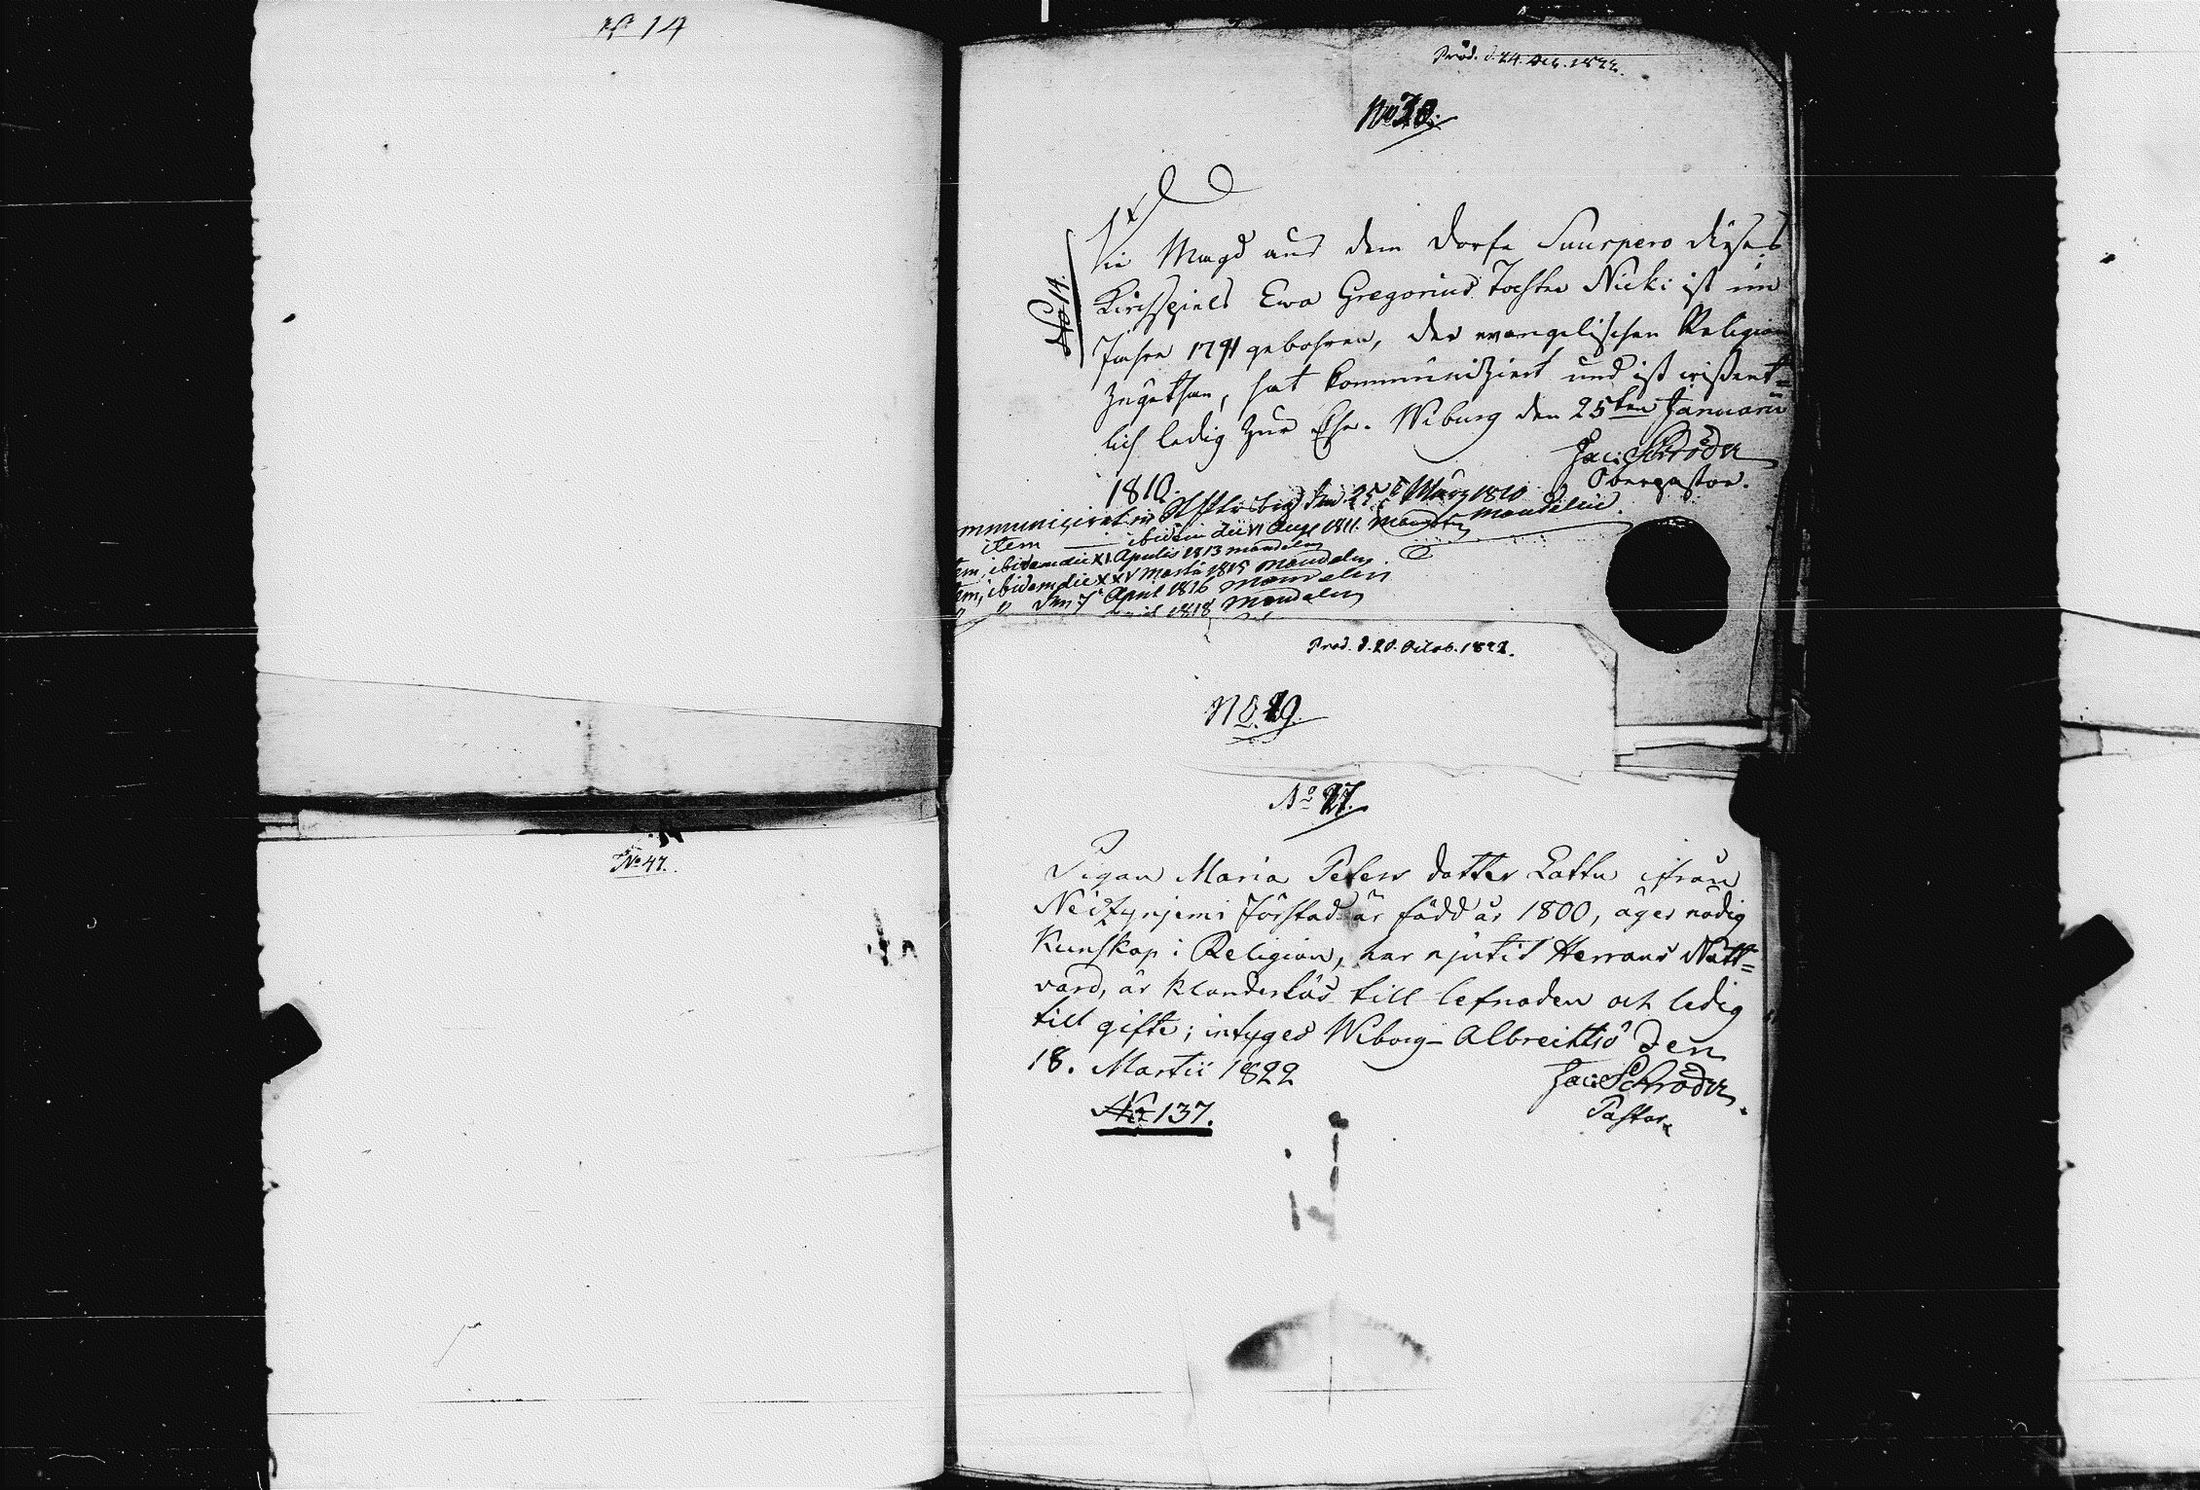 No 14
No 47.
Prod. d. 24. Dec. 1822.
No 30.
No 14.
Die Magd aus dem Dorfe Suurpero dieses
Kirchspiels Ewa Gregorius Tochter Nicki ist im
Jahre 1791 gebohren, der evangelischen Religion
zugethan, hat kommuniziert und ist wißent=
lich ledig zur Ehe. Wiburg den 25ten Januarii
1810.
Jac: Schröder
Oberpastor.
ommuniciret in den 25 t März 1810 Mandelin.
item ibidem die VI Aug 1811. Mandelin
tem, ibidem die XI Aprilis 1813 Mandelin
tem, ibidem die XXV Martii 1815 Mandelin
" " den 7t April 1816 Mandelin
1818 Mandelin
Prod. d. 20. Octob. 1822.
No. 29.
No 27.
Pigan Maria Peters dotter Lattu ifrån
förstad är född år 1800, äger nödig
Kunskap i Religion, har njutit Herrans Natt=
vard, är klanderlös till lefnaden och ledig
till gifte; intyges Wiborg - Albrechtsö den
18. Martii 1822
Jac: Schröder.
Pastor
No 137.